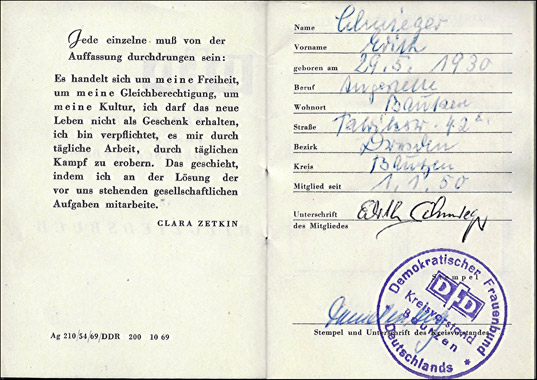 Jede einzelne muß von der
Auffassung durchdrungen sein:
Es handelt sich um meine Freiheit,
um meine Gleichberechtigung, um
meine Kultur, ich darf das neue
Leben nicht als Geschenk erhalten,
ich bin verpflichtet, es mir durch
tägliche Arbeit, durch täglichen
Kampf zu erobern. Das geschieht,
indem ich an der Lösung der
vor uns stehenden gesellschaftlichen
Aufgaben mitarbeite.“
CLARA ZETKIN
Ag 210/54/69/DDR 200 10 69
Name
Vorname Edith
geboren am 29.5.1930
Beruf Angestellte
Wohnort Bautzen
Straße
Bezirk Dresden
Kreis Bautzen
Mitglied seit 1.1.50
Unterschrift Edith
des Mitgliedes
Stempel
Demokratischer Frauenbund
DFD
Kreisvorstand
Bautzen
Deutschlands
Stempel und Unterschrift des Kreisvorstandes